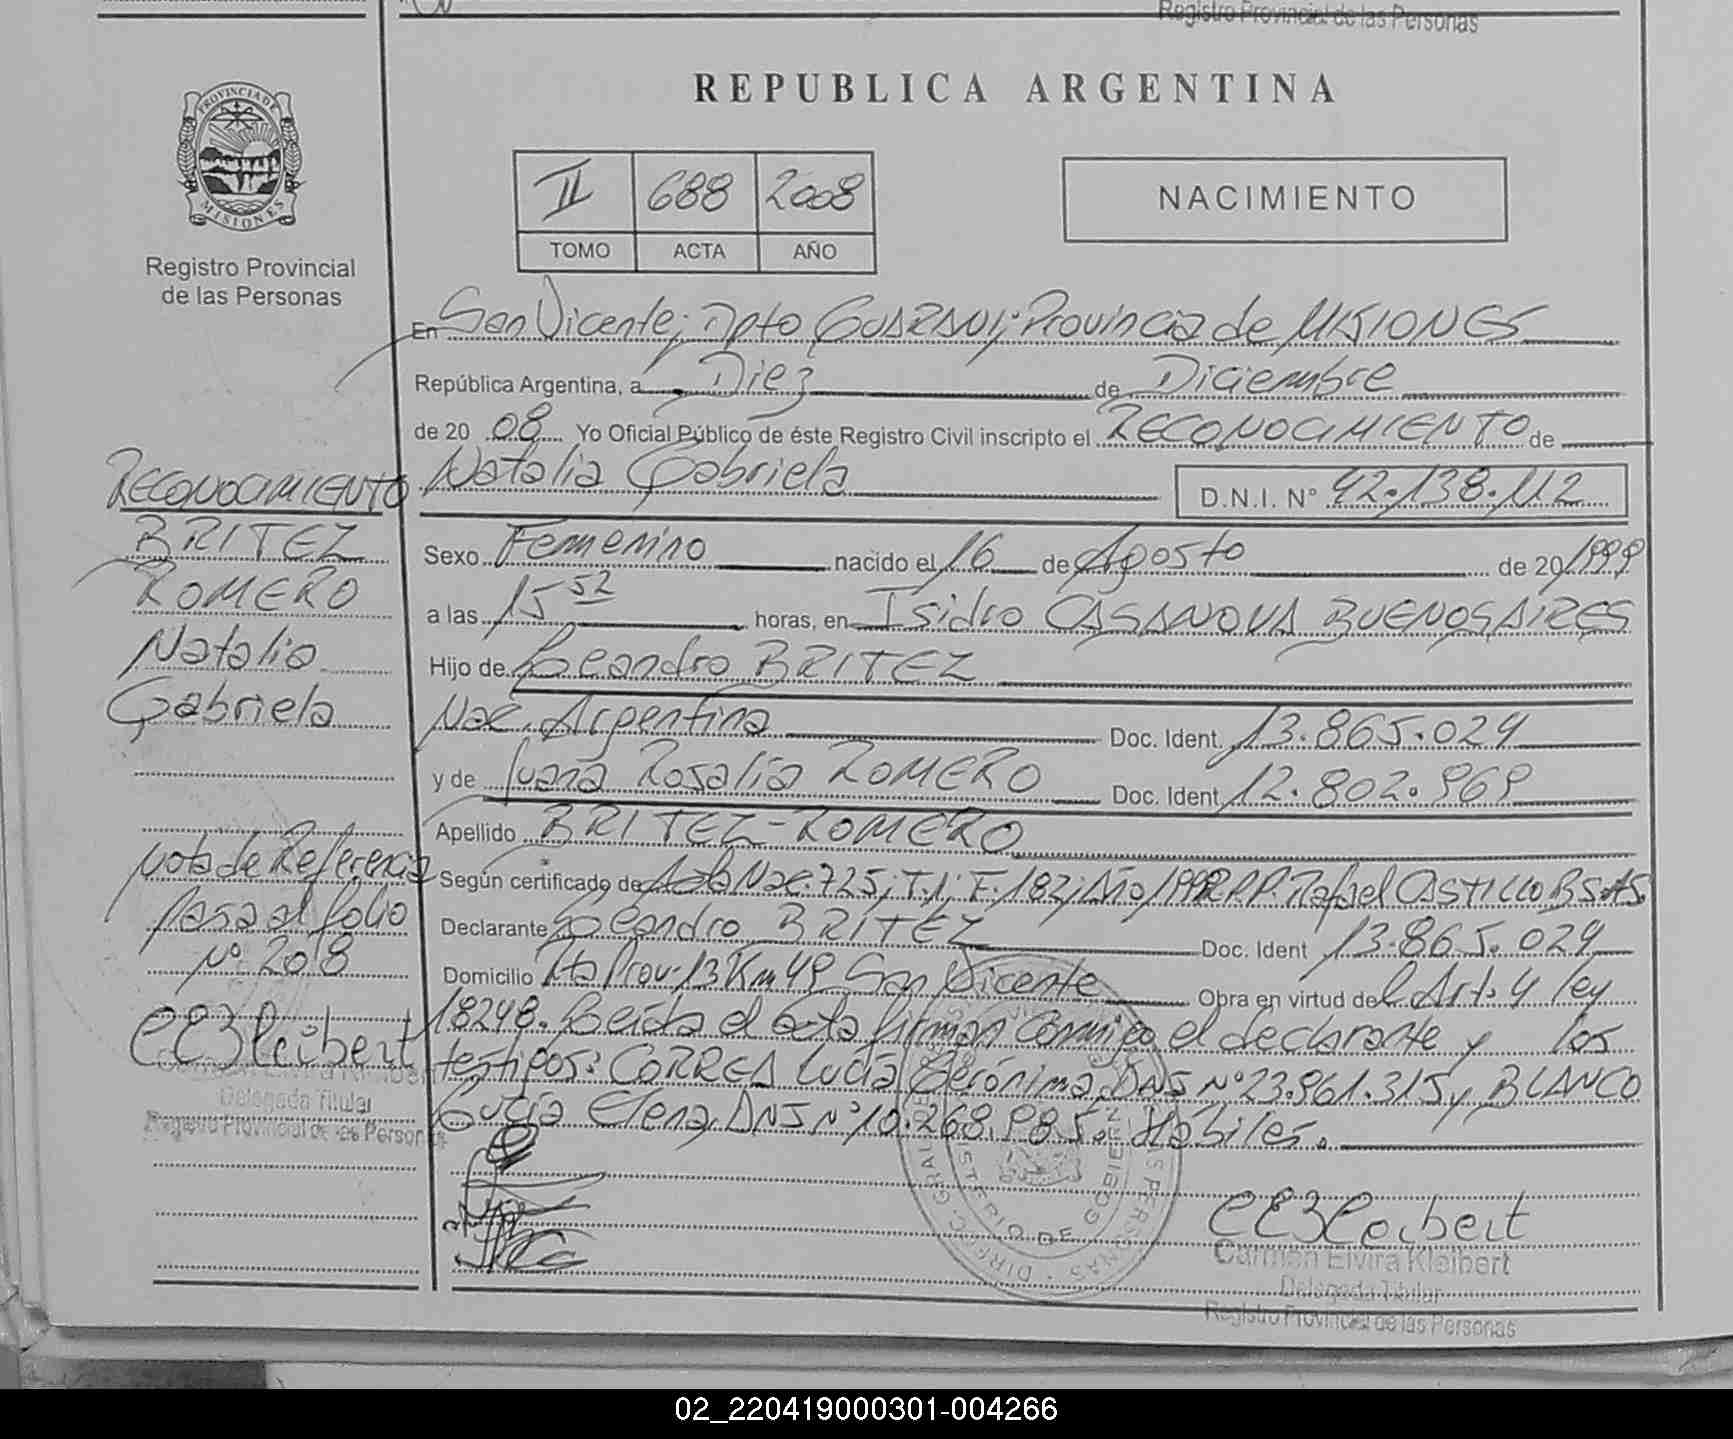 Registro Provincial de las Personas
REPUBLICA ARGENTINA
PROVINCIA DE
MISIONES
Registro Provincial
de las Personas
II 688 2008
TOMO ACTA AÑO
NACIMIENTO
En San Vicente; Dpto GUARANI; Provincia de MISIONES
República Argentina, a Diez de Diciembre
de 20 08 Yo Oficial Público de éste Registro Civil inscripto el RECONOCIMIENTO de
Natalia Gabriela D.N.I. N° 42.138.112
Sexo Femenino nacido el 16 de Agosto de 20/1999
a las 15 52 horas, en Isidro CASANOVA BUENOS AIRES
Hijo de Leandro BRITEZ
Nac. Argentina Doc. Ident. 13.865.024
y de Juana Rosalia ROMERO Doc. Ident 12.802.969
Apellido BRITEZ-ROMERO
Según certificado de Acta Nac. 725; T.1; F.182; Año/1999. R.P. Rafael CASTILLO BS.AS.
Declarante Leandro BRITEZ Doc. Ident 13.865.024
Domicilio Rta Prov. 13 Km 49 San Vicente Obra en virtud del Art. 4 ley
18248. Leida el acta firman conmigo el declarante y los
testigos: CORREA Lucia Gerónima DNI N° 23.961.315 y BLANCO
Lucia Elena, DNI N° 10.268.985. Hábiles.
RECONOCIMIENTO
BRITEZ
ROMERO
Natalia
Gabriela
Nota de Referencia
Pasa al folio
N° 208
CEKleibert
Delegada Titular
Registro Provincial de las Personas
CEKleibert
Carmen Elvira Kleibert
Delegada Titular
Registro Provincial de las Personas
02_220419000301-004266